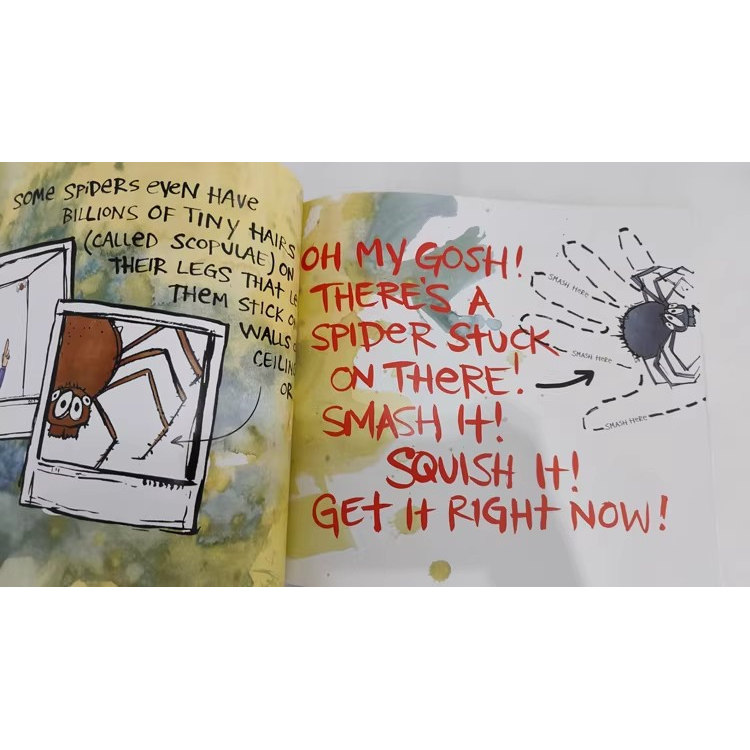 SOME SPiDERS eveN HAVE
BILLIONS OF TiNY HAIRS
(CALLED SCOPULAE) ON
THEIR LEGS THAT
THEM STICK
WALLS
OR
OH MY GOSH!
THERE'S A
SPIDER STUCK
ON THeRE!
SMASH It!
SQUISH It!
GEt It RIGHt NOW!
SMASH HERE
SMASH HERE
SMASH HERE